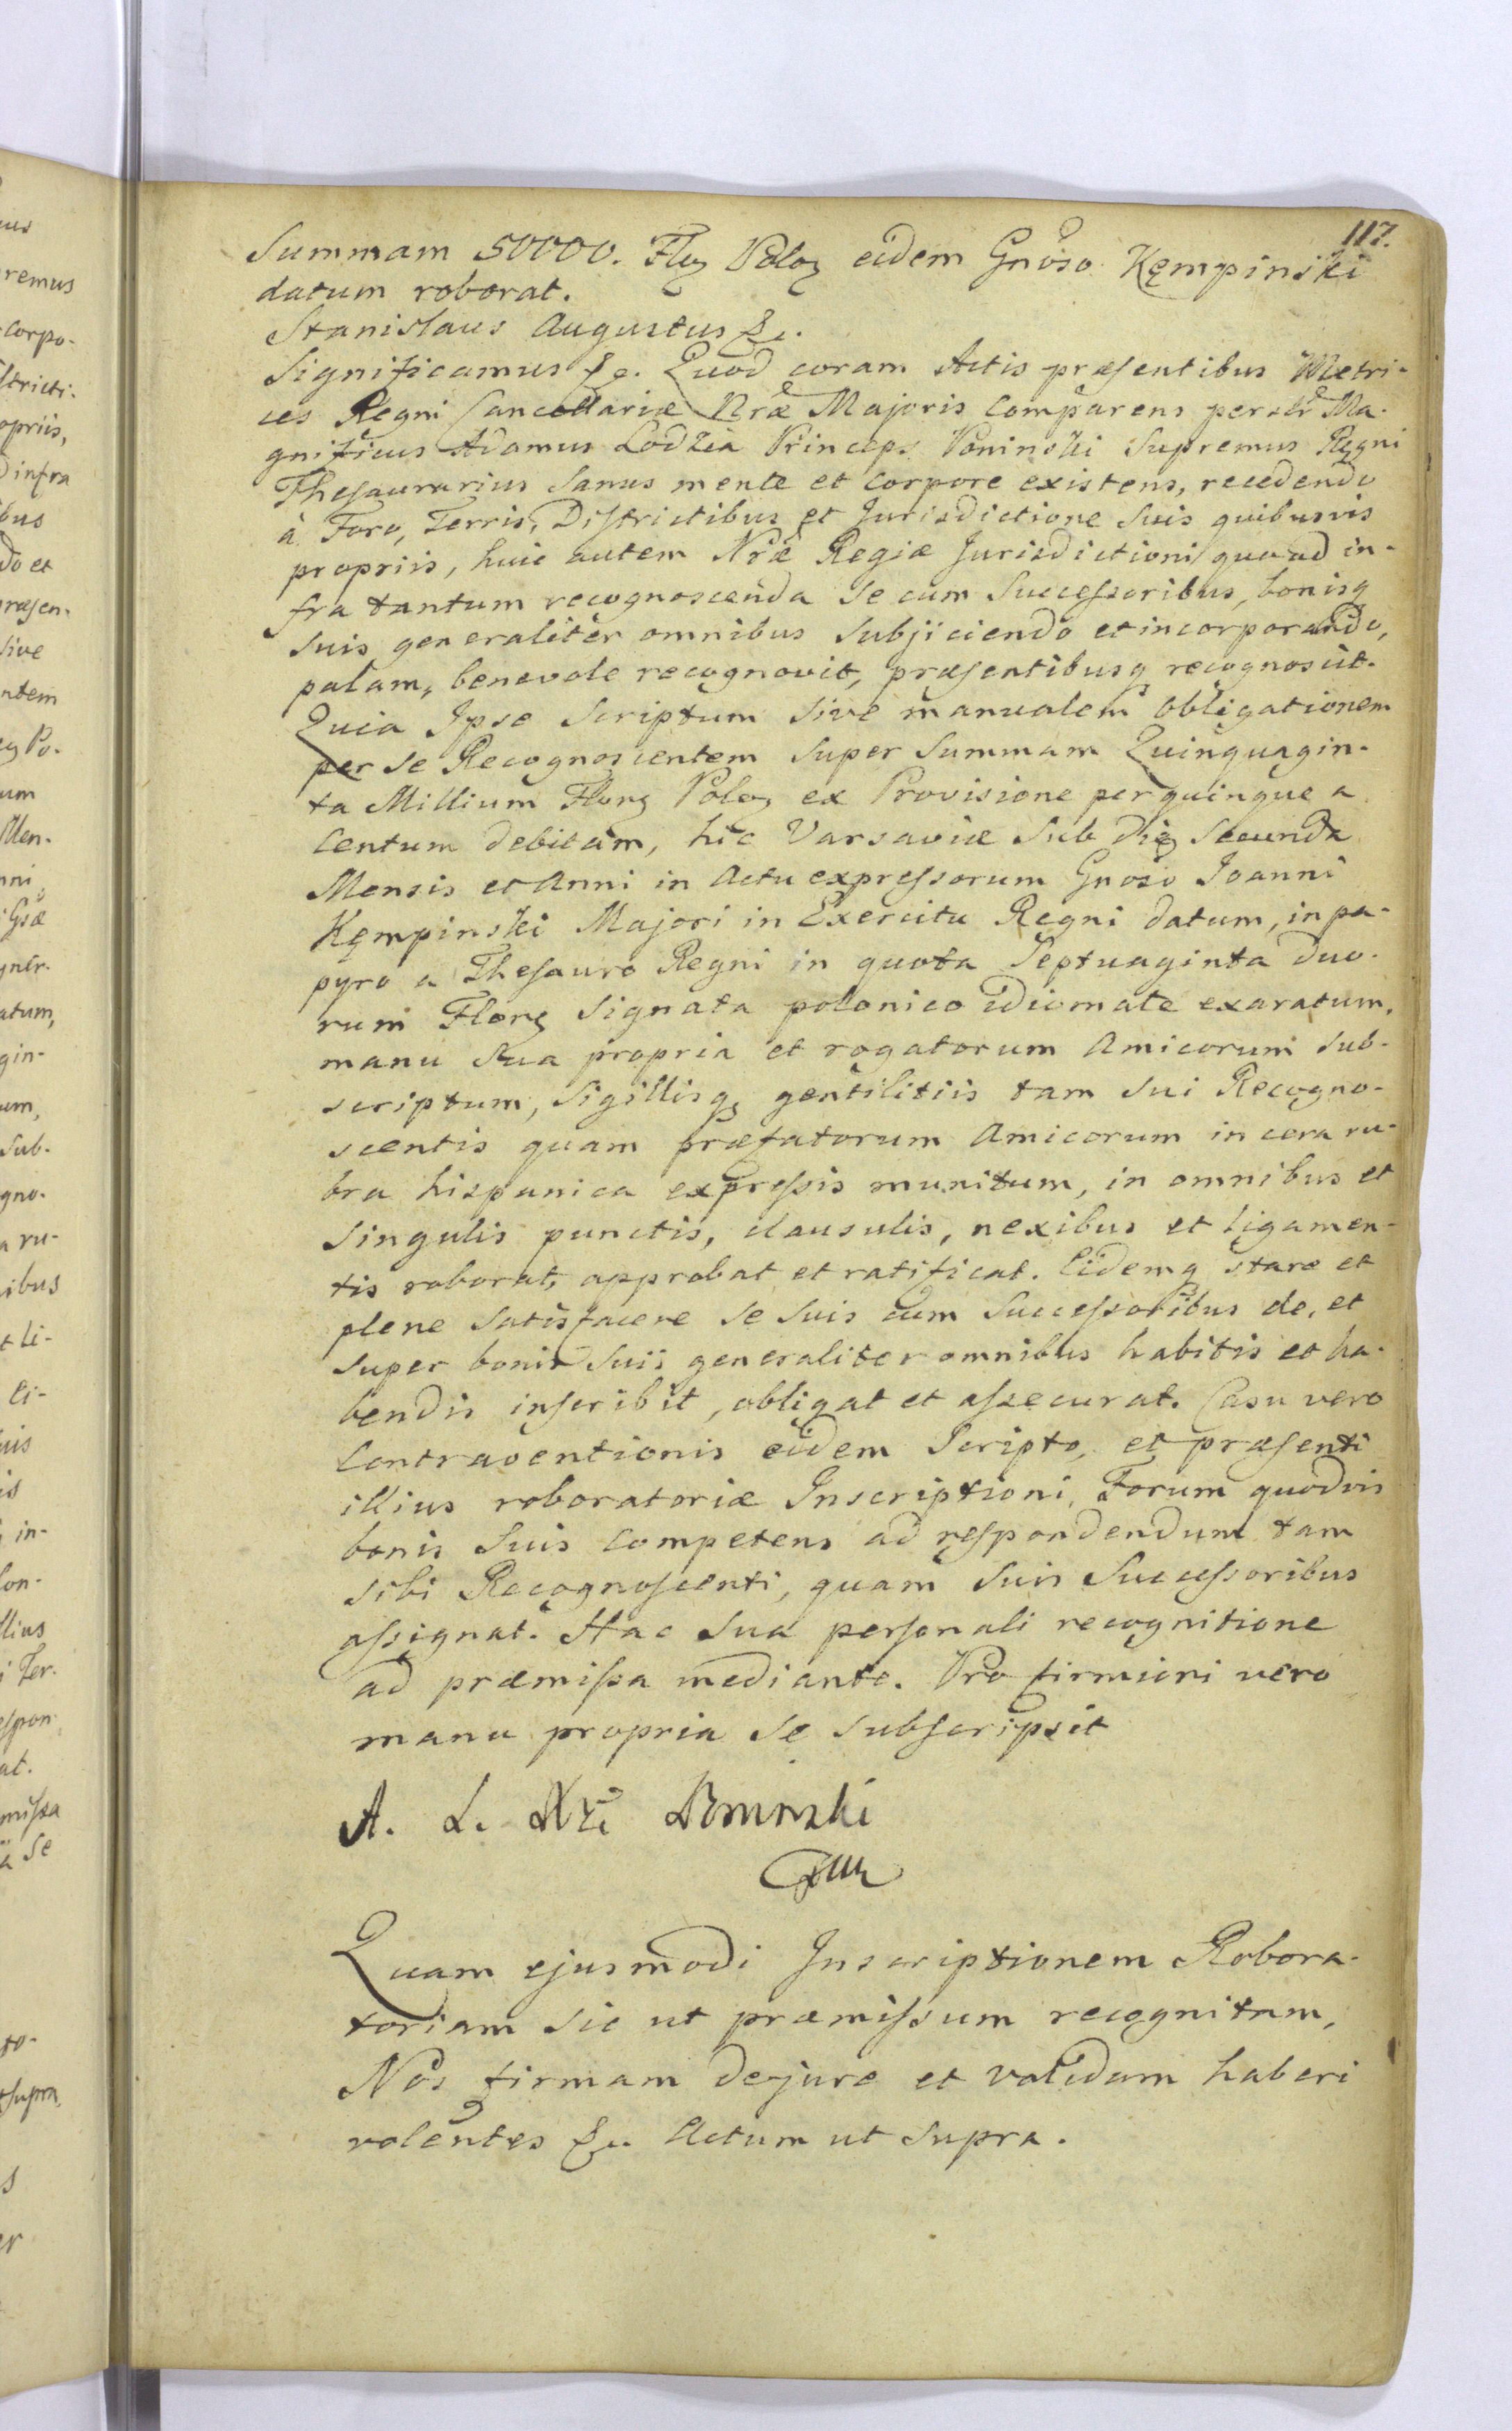 117.
Summam 50000. Flor Polor eidem Gnoso Kępinski
datum roborat.
Stanislaus Augustus &c.
Significamus &c. Quod coram Actis præsentibus Metri-
ces Regni Cancellariæ Nræ Majoris Comparens personlr Ma-
gnificus Adamus Lodzia Princeps Poninski Supremus Regni
Thesaurarius Sanus mente et Corpore existens, recedendo
à Foro, Terris, Districtibus et Jurisdictione Suis quibusvis
propriis, huic autem Nræ Regiæ Jurisdictioni quoad in-
fra tantum recognoscenda Se cum Successoribus, bonisq
Suis generaliter omnibus Subjiciendo et incorporando,
palam, benevole recognovit, præsentibusq recognoscit.
Quia Ipse Scriptum Sive manualem Obligationem
per Se Recognoscentem Super Summam Quinquagin-
ta Millium Flor Polor ex Provisione per quinque a
Centum debitam, hic Varsaviæ Sub die Secunda
Mensis et Anni in Actu expressorum Gnoso Joanni
Kępinski Majori in Exercitu Regni datum, in pa-
pyro a Thesauro Regni in quota Septuaginta duo-
rum Flor Signata polonico idiomate exaratum,
manu Sua propria et rogatorum Amicorum Sub-
scriptum, Sigillisq gentilitiis tam Sui Recogno-
scentis quam præfatorum Amicorum in cera ru-
bra hispanica expressis munitum, in omnibus et
Singulis punctis, clausulis, nexibus et Ligamen-
tis roborat, approbat et ratificat. Eidemq stare et
plene Satisfacere Se Suis cum Successoribus de, et
Super bonis Suis generaliter omnibus habitis et ha-
bendis inscribit, obligat et assecurat. Casu vero
Contraventionis eidem Scripto, et præsenti
illius roboratoriæ Inscriptioni, Forum quodvis
bonis Suis Competens ad respondendum tam
Sibi Recognoscenti, quam Suis Successoribus
assignat. Hac Sua personali recognitione
ad præmissa mediante. Pro firmiori vero
manu propria Se Subscripsit
A. L. Xże Poninski
Quam ejusmodi Inscriptionem Robora-
toriam Sic ut præmissum recognitam,
Nos firmam de jure et validam haberi
volentes &c. Actum ut Supra.